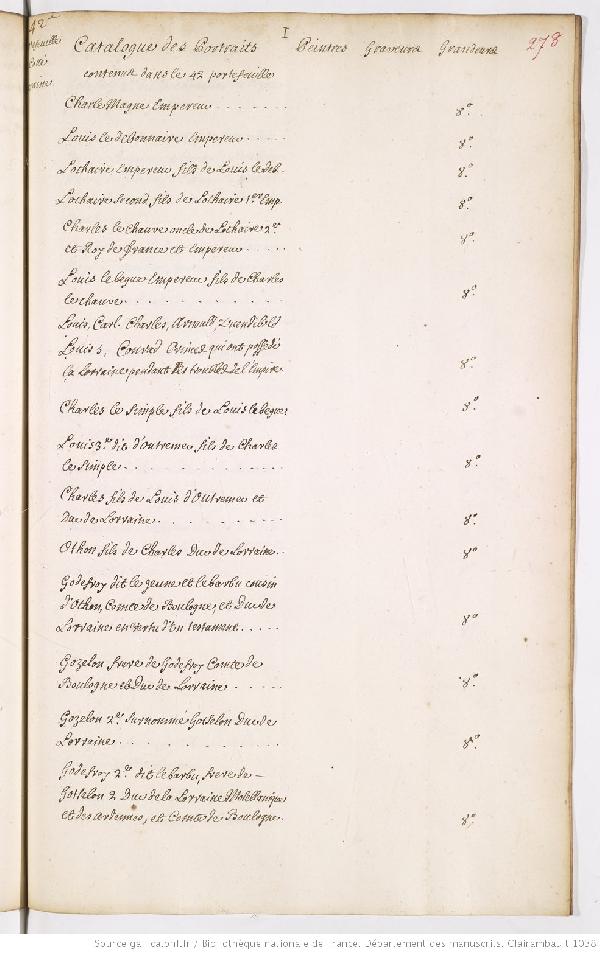 42e
I
Catalogue des Portraits Peintres Graveurs Grandeurs 278
contenus dans le 42 portefeuille
Charle Magne Empereur . . . . . . 8.o
Louis le debonnaire Empereur . . . . . 8.o
Lothaire Empereur fils de Louis le deb. 8.o
Lothaire second, fils de Lothaire 1.er Emp. 8.o
Charles le Chauve oncle de Lothaire 2.e
et Roy de france et Empereur . . . . . 8.o
Louis le begue Empereur fils de Charles
le chauve . . . . . . . . . . 8.o
Louis, Carl. Charles, Arnould,
Louis 3, Conrad qui ont possedé
la Lorraine pendant les troubles de l'Empire 8.o
Charles le Simple fils de Louis le begue 8.o
Louis 3.e dit d'Outremer fils de Charles
le Simple . . . . . . . . . . 8.o
Charles fils de Louis d'Outremer et
Duc de Lorraine . . . . . . . . 8.o
Othon fils de Charles Duc de Lorraine . . 8.o
Godefroy dit le jeune et le barbu cousin
d'Othon, Comte de Boulogne, et Duc de
Lorraine en vertu d'un testament . . . . 8.o
Gozelon frere de Godefroy Comte de
Boulogne et Duc de Lorraine . . . . . 8.o
Gozelon 2.e surnommé Gotselon Duc de
Lorraine . . . . . . . . . . 8.o
Godefroy 2.e dit le barbu, frere de –
Gotselon 2 Duc de la Lorraine Mosellanique
et des ardennes, et Comte de Boulogne. 8.o
Source gallica.bnf.fr / Bibliothèque nationale de France. Département des manuscrits. Clairambault 1038